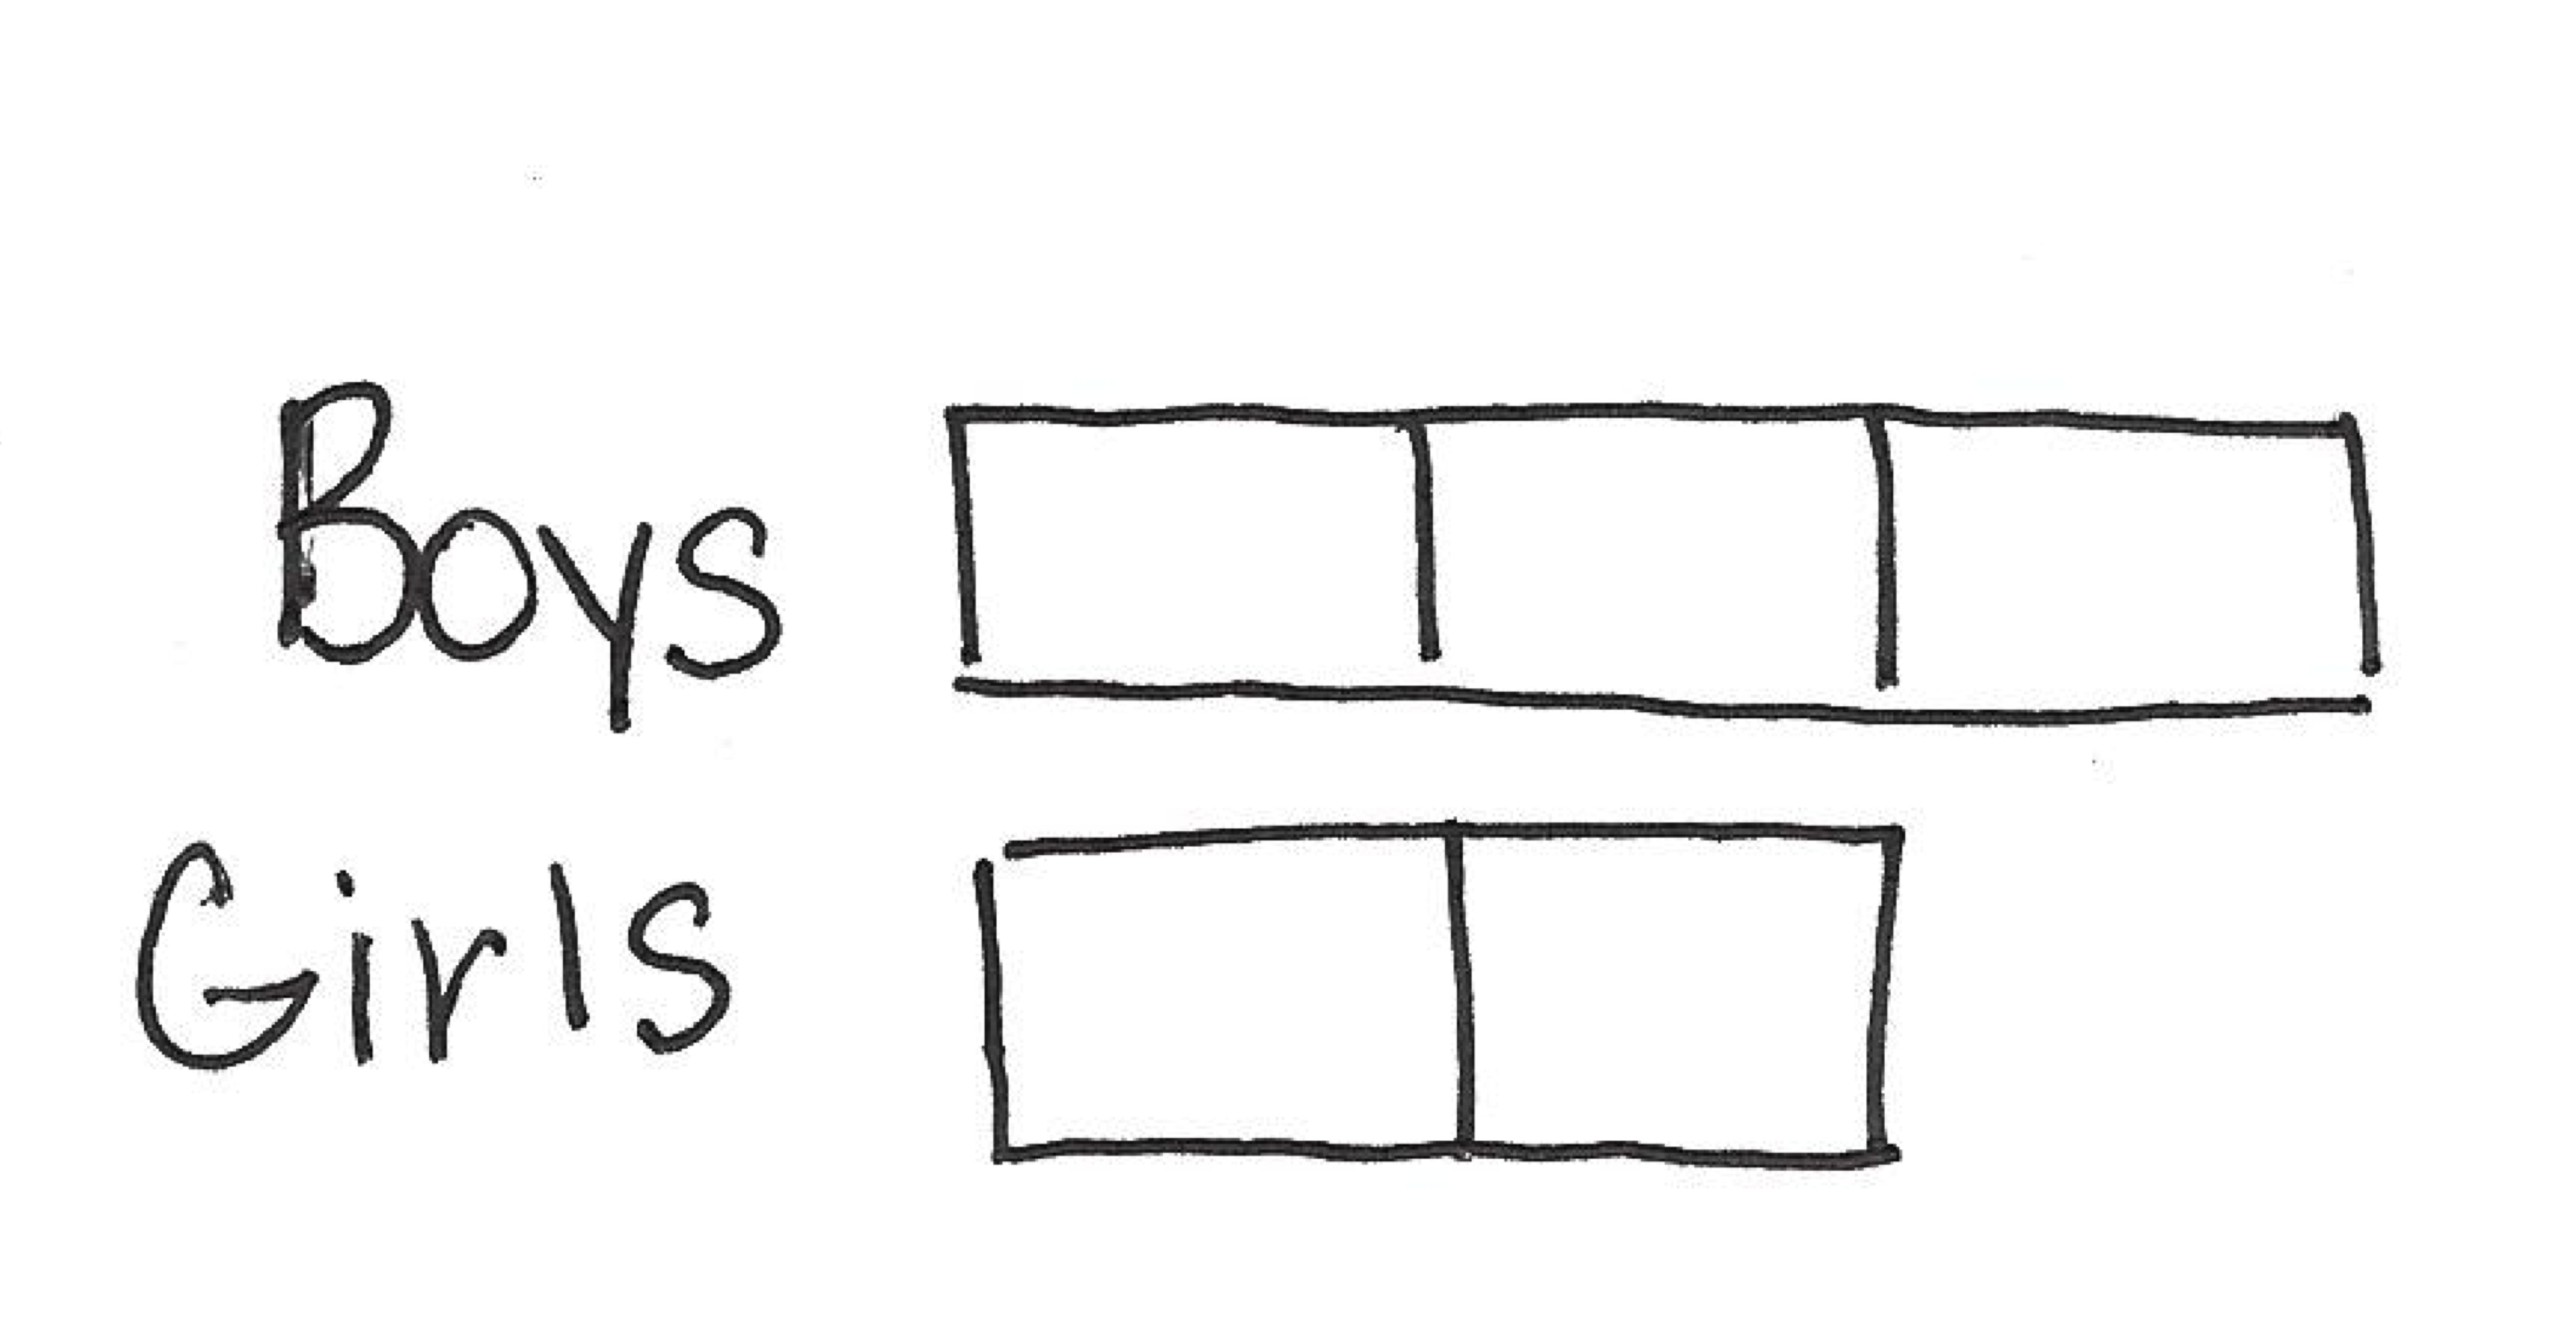 Boys
Girls